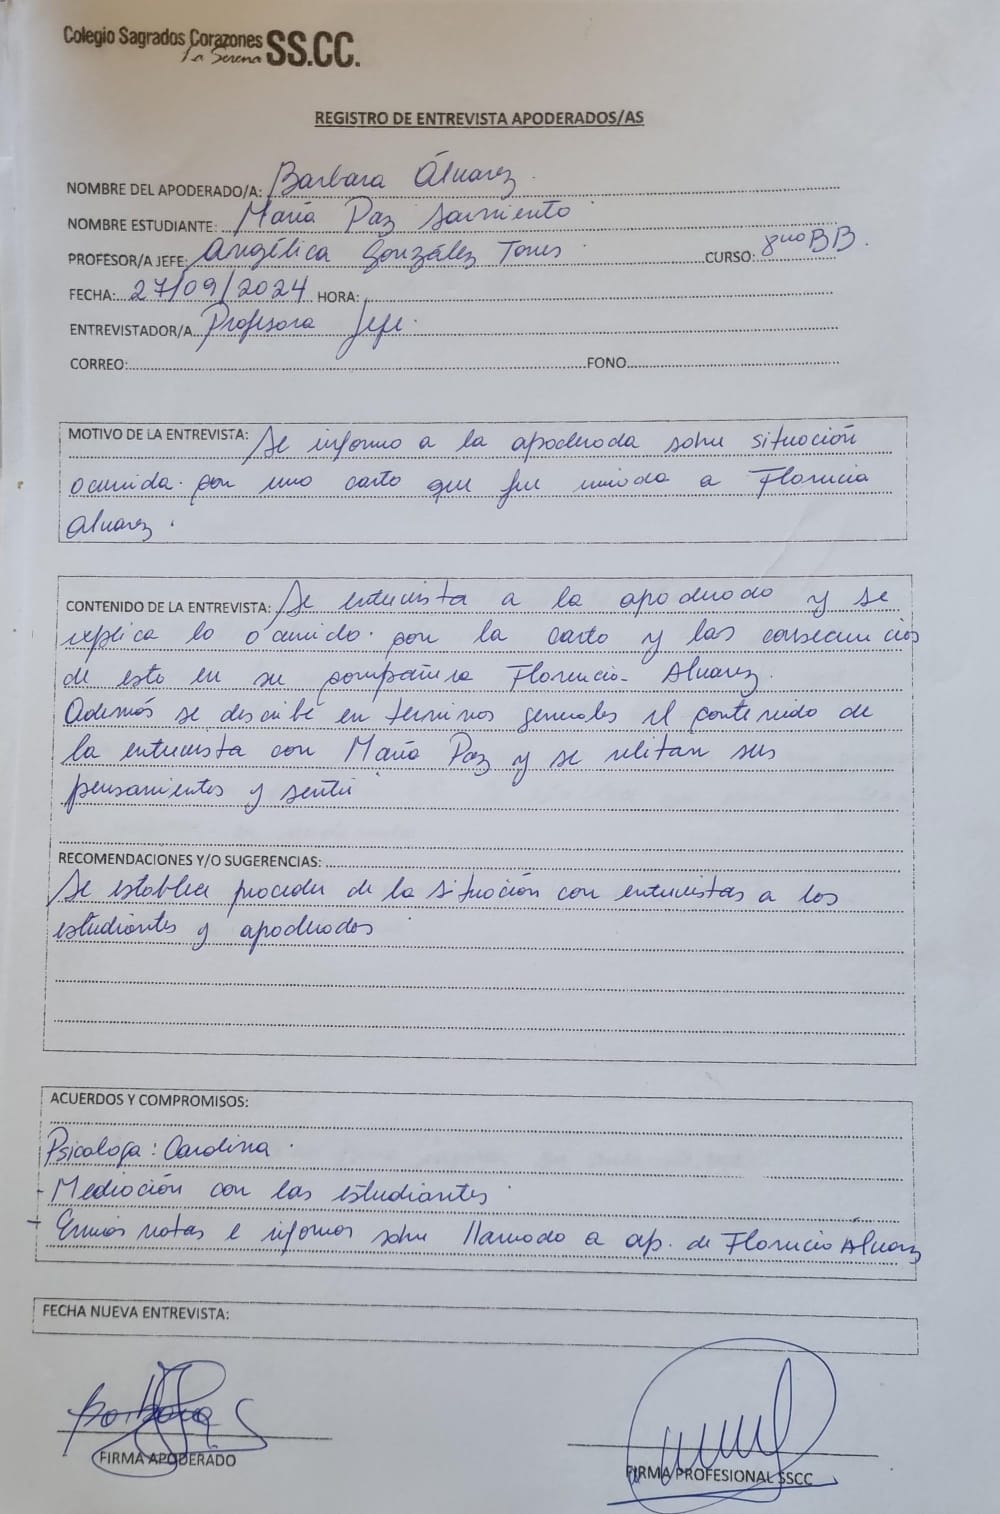 Colegio Sagrados Corazones SS.CC.
La Serena
REGISTRO DE ENTREVISTA APODERADOS/AS
NOMBRE DEL APODERADO/A: Barbara Álvarez.
NOMBRE ESTUDIANTE: María Paz Sarmiento
PROFESOR/A JEFE: Angélica González Torres CURSO: 8vo BB.
FECHA: 27/09/2024 HORA:
ENTREVISTADOR/A Profesora Jefe.
CORREO: FONO
MOTIVO DE LA ENTREVISTA: Se informa a la apoderada sobre situación
ocurrida con una carta que fue enviada a Florencia
Alvarez.
CONTENIDO DE LA ENTREVISTA: Se entrevista a la apoderada y se
explica lo ocurrido con la carta y las consecuencias
de esto en su compañera Florencia Alvarez.
Además se describe en terminos generales el contenido de
la entrevista con María Paz y se relatan sus
pensamientos y sentir
RECOMENDACIONES Y/O SUGERENCIAS:
Se establece proceder de la situación con entrevistas a los
estudiantes y apoderados
ACUERDOS Y COMPROMISOS:
Psicologa: Carolina.
- Mediación con las estudiantes.
- Enviar notas e informar sobre llamado a ap. de Florencia Álvarez
FECHA NUEVA ENTREVISTA:
FIRMA APODERADO
FIRMA PROFESIONAL SSCC